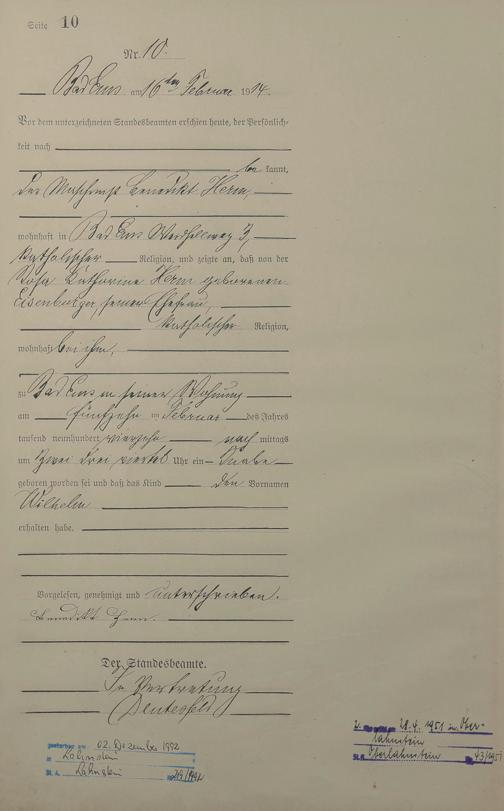 Seite 10
Nr. 10.
Bad Ems am 16ten Februar 1914.
Vor dem unterzeichneten Standesbeamten erschien heute, der Persönlich-
keit nach
be kannt,
der Maschinist Benedikt Herm,
wohnhaft in Bad Ems 3,
katholischer Religion, und zeigte an, daß von der
Rosa Katharine Herm geborenen
Eisenburger, seiner Ehefrau,
katholischer Religion,
wohnhaft bei ihm,
zu Bad Ems in seiner Wohnung
am fünfzehn ten Februar des Jahres
tausend neunhundert vierzehn nach mittags
um zwei drei viertel Uhr ein Knabe
geboren worden sei und daß das Kind den Vornamen
Wilhelm
erhalten habe.
Vorgelesen, genehmigt und unterschrieben.
Benedikt Herm.
Der Standesbeamte.
In Vertretung
2. 28.4.1951 in Ober-
lahnstein
St.A. Oberlahnstein Nr. 43/1951
gestorben am 02. Dezember 1992
in Lahnstein
St. A. Lahnstein